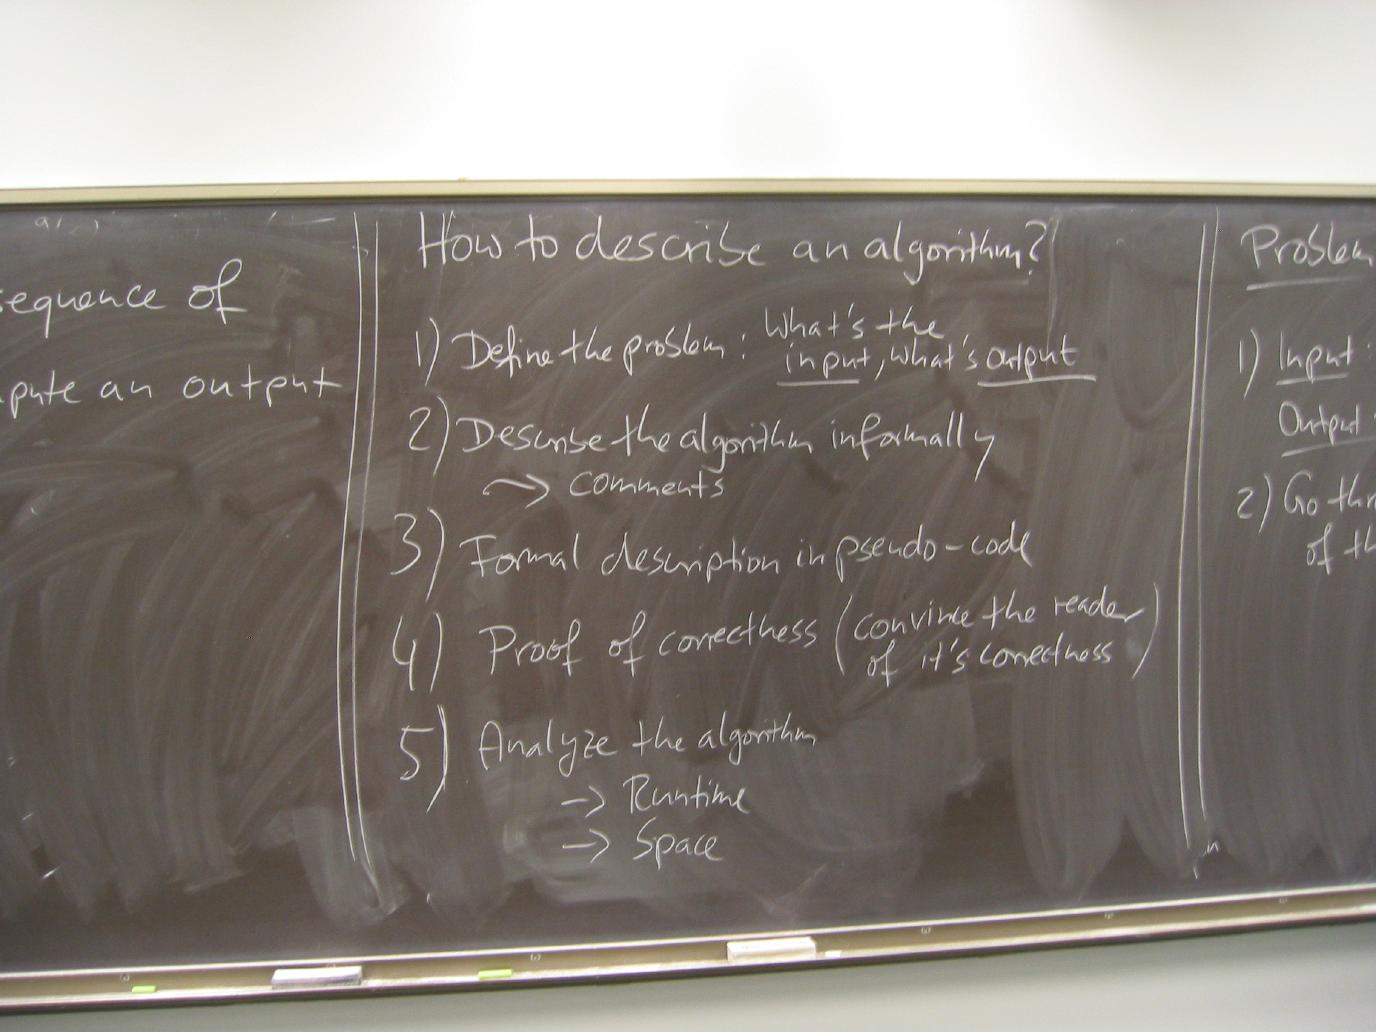 sequence of
pute an output
How to describe an algorithm?
1) Define the problem: What's the
input, what's output
2) Describe the algorithm informally
→ comments
3) Formal description in pseudo-code
4) Proof of correctness (convince the reader
of it's correctness)
5) Analyze the algorithm
→ Runtime
→ Space
Problem
1) Input:
Output
2) Go thr
of th